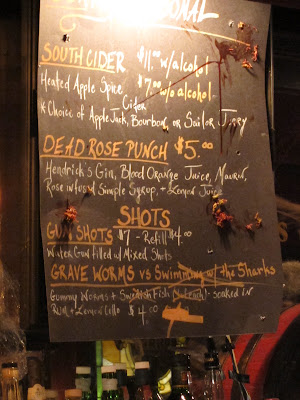 SOUTH CIDER $11.00 w/alcohol
Heated Apple Spice $7.00 w/o alcohol
Cider
& Choice of Apple Jack, Bourbon, or Sailor Jerry
DEAD ROSE PUNCH $5.00
Hendrick's Gin, Blood Orange Juice,
Rose infused Simple Syrup, + Lemon Juice
SHOTS
GUN SHOTS $7 - Refill $4.00
Water Gun filled w/ Mixed Shots
GRAVE WORMS vs Swimming w/ the Sharks
Gummy Worms + Swedish Fish - soaked in
Rum + Lemon Cello $4.00